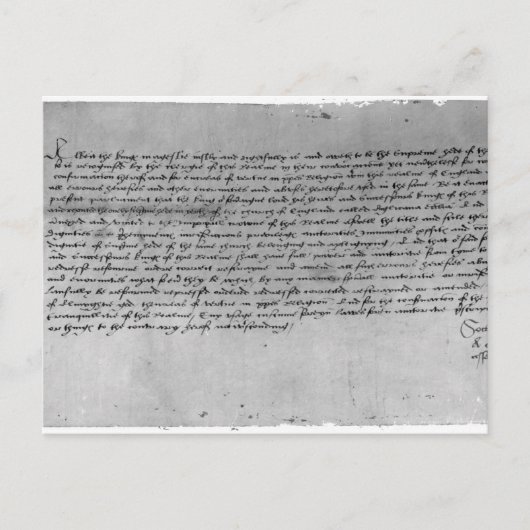 Albeit the kings mageste iustly and rightfully is and oweth to be the Supreme hede of the
is recognised by the clergie of this Realme in their convocacions yet neverthelesse for
confirmacion therof and for encreas of vertue in xpes Religion within this realme of England
all errours heresies and other enormities and abuses heretofore used in the same Be it enact
present parliament that the king our soveraign lord his heires and successours kings of this
and reputed the only supreme hede in erth of the church of England called Anglicana ecclia And
annexed and united to the Imperyall crowne of this Realme aswell the title and stile ther
dignities preemynences iurisdiccions privileges auctorities ymmunities profits and com
dignitie of supreme hede of the same church belonging and apperteyning And that our said
and successours kings of this Realme shall have full power and auctoritie from tyme to
redresse reforme ordre correct restrayne and amend all such errours heresies abu
and enormities what soever they be which by any maner spirituall auctoritie or
lawfully be reformed repressed ordred redressed corrected restrayned or amended
of almyghtie god thencreas of vertue in xpes Religion And for the conservacion of the
tranquillitie of this Realme Any usage custume foreyn lawes foreyn auctoritie prescrip
or thing to the contrary herof notwithstonding